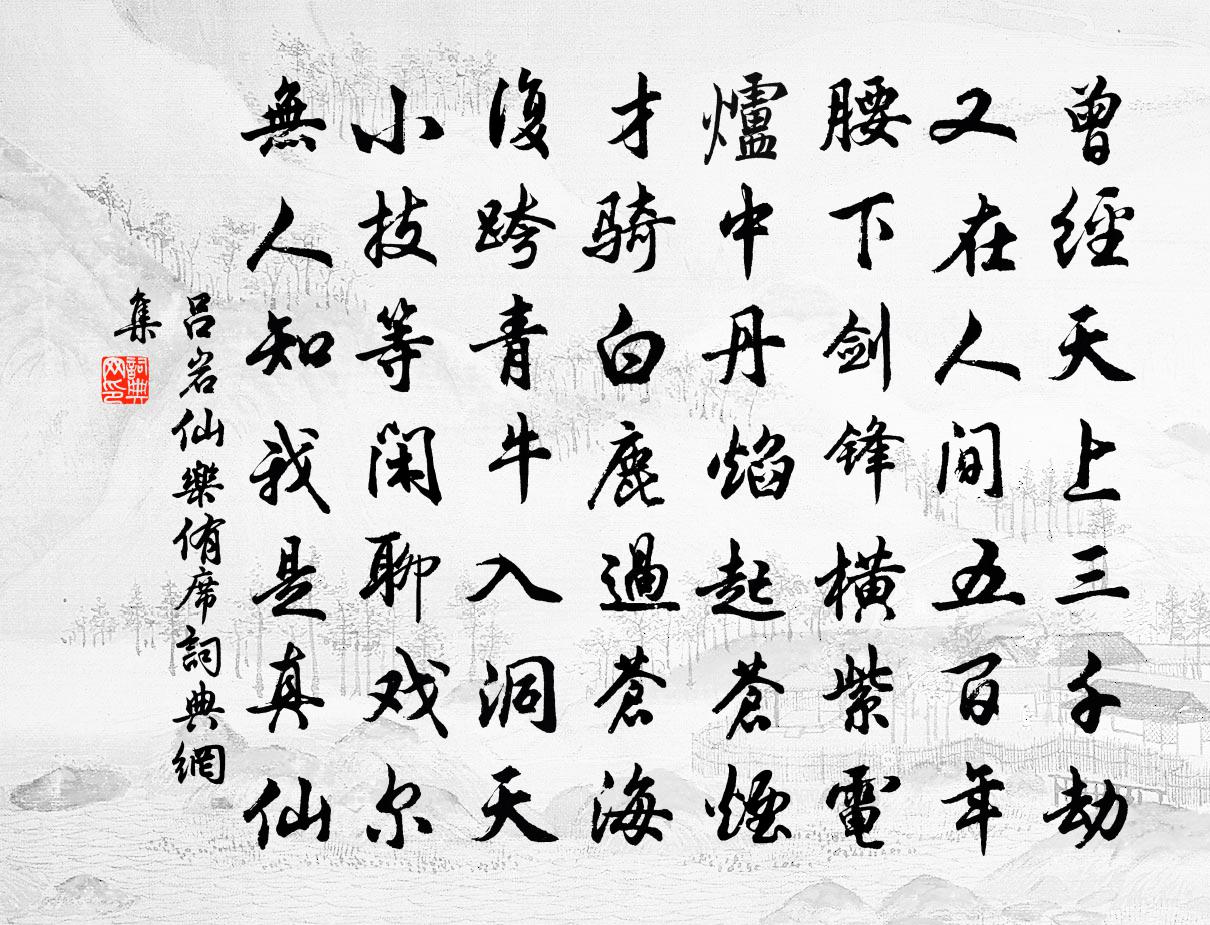 曾經天上三千劫
又在人間五百年
腰下劍鋒橫紫電
爐中丹焰起蒼煙
才騎白鹿過蒼海
復跨青牛入洞天
小技等閑聊戏尔
無人知我是真仙
吕岩仙樂侑席詞典網
集
詞典网印